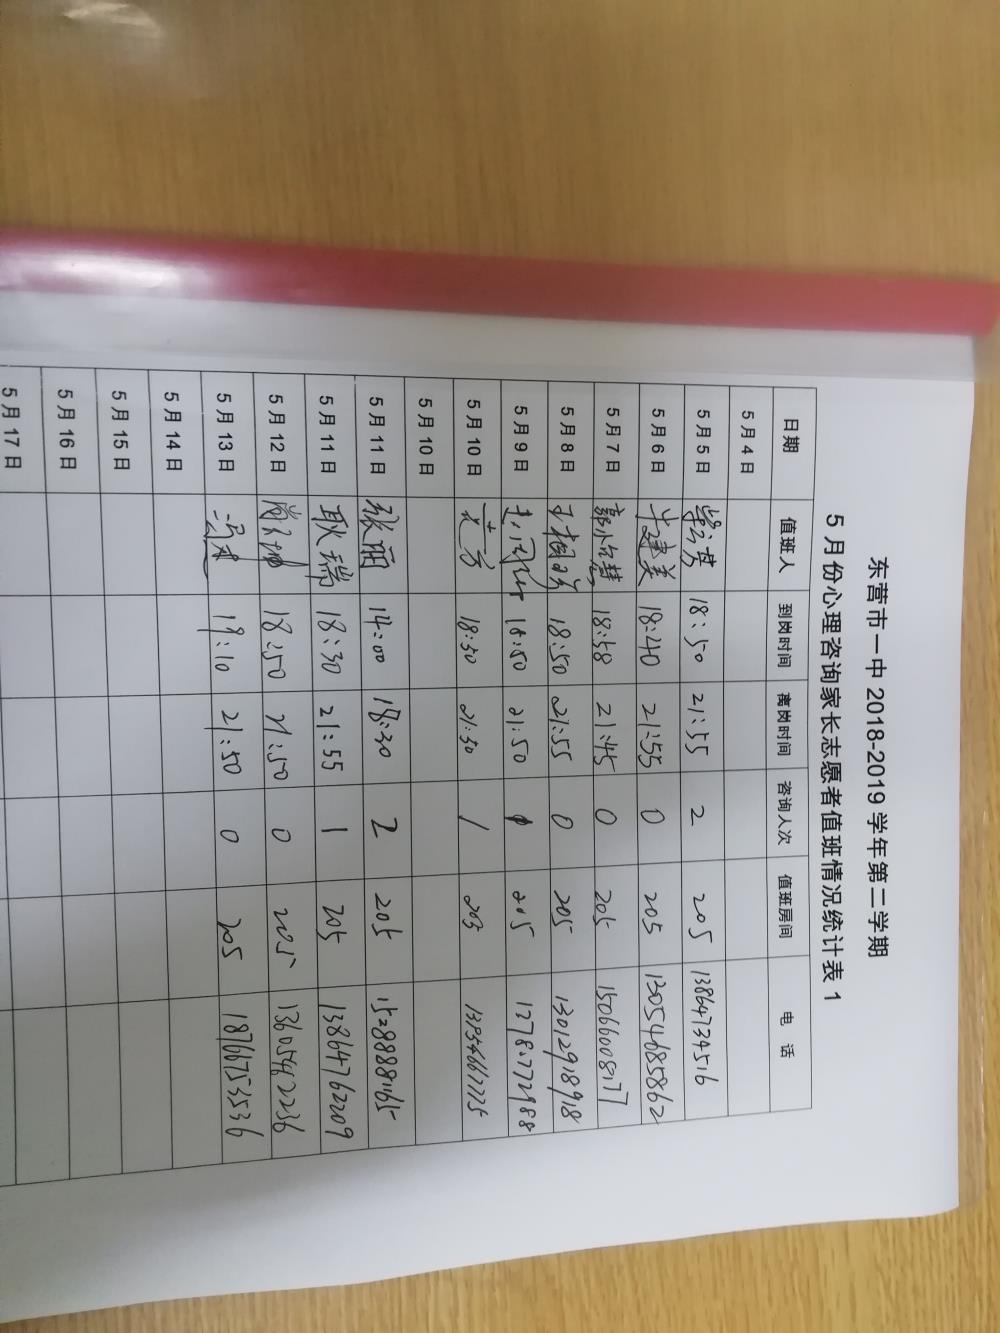 东营市一中 2018-2019 学年第二学期
5 月份心理咨询家长志愿者值班情况统计表 1
日期 值班人 到岗时间 离岗时间 咨询人次 值班房间 电 话
5 月 4 日
5 月 5 日 18:50 21:55 2 205 13864734516
5 月 6 日 18:40 21:55 0 205 13054685862
5 月 7 日 18:58 21:45 0 205 15066008177
5 月 8 日 18:50 21:55 0 205 13012918918
5 月 9 日 18:50 21:50 205
5 月 10 日 18:50 21:50 1
5 月 10 日
5 月 11 日 张丽 14:00 18:30 2 205 15288881165
5 月 11 日 耿瑞 18:30 21:55 1 205 13864762209
5 月 12 日 18:50 21:50 0 205 13605462236
5 月 13 日 19:10 21:50 0 205 18766753536
5 月 14 日
5 月 15 日
5 月 16 日
5 月 17 日